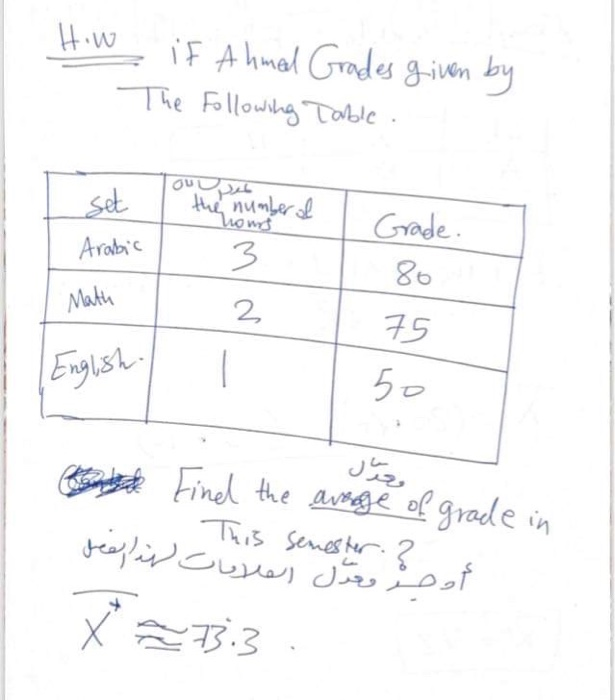 H.W iF Ahmed Grades given by
The Following Table.
set
عدد الساعات
the number of
hours
Grade.
Arabic 3 80
Math 2 75
English. 1 50
معدل
Find the avrage of grade in
This semester.?
أوجد معدّل العلامات لهذا الفصل
X̄* ≈ 73.3.